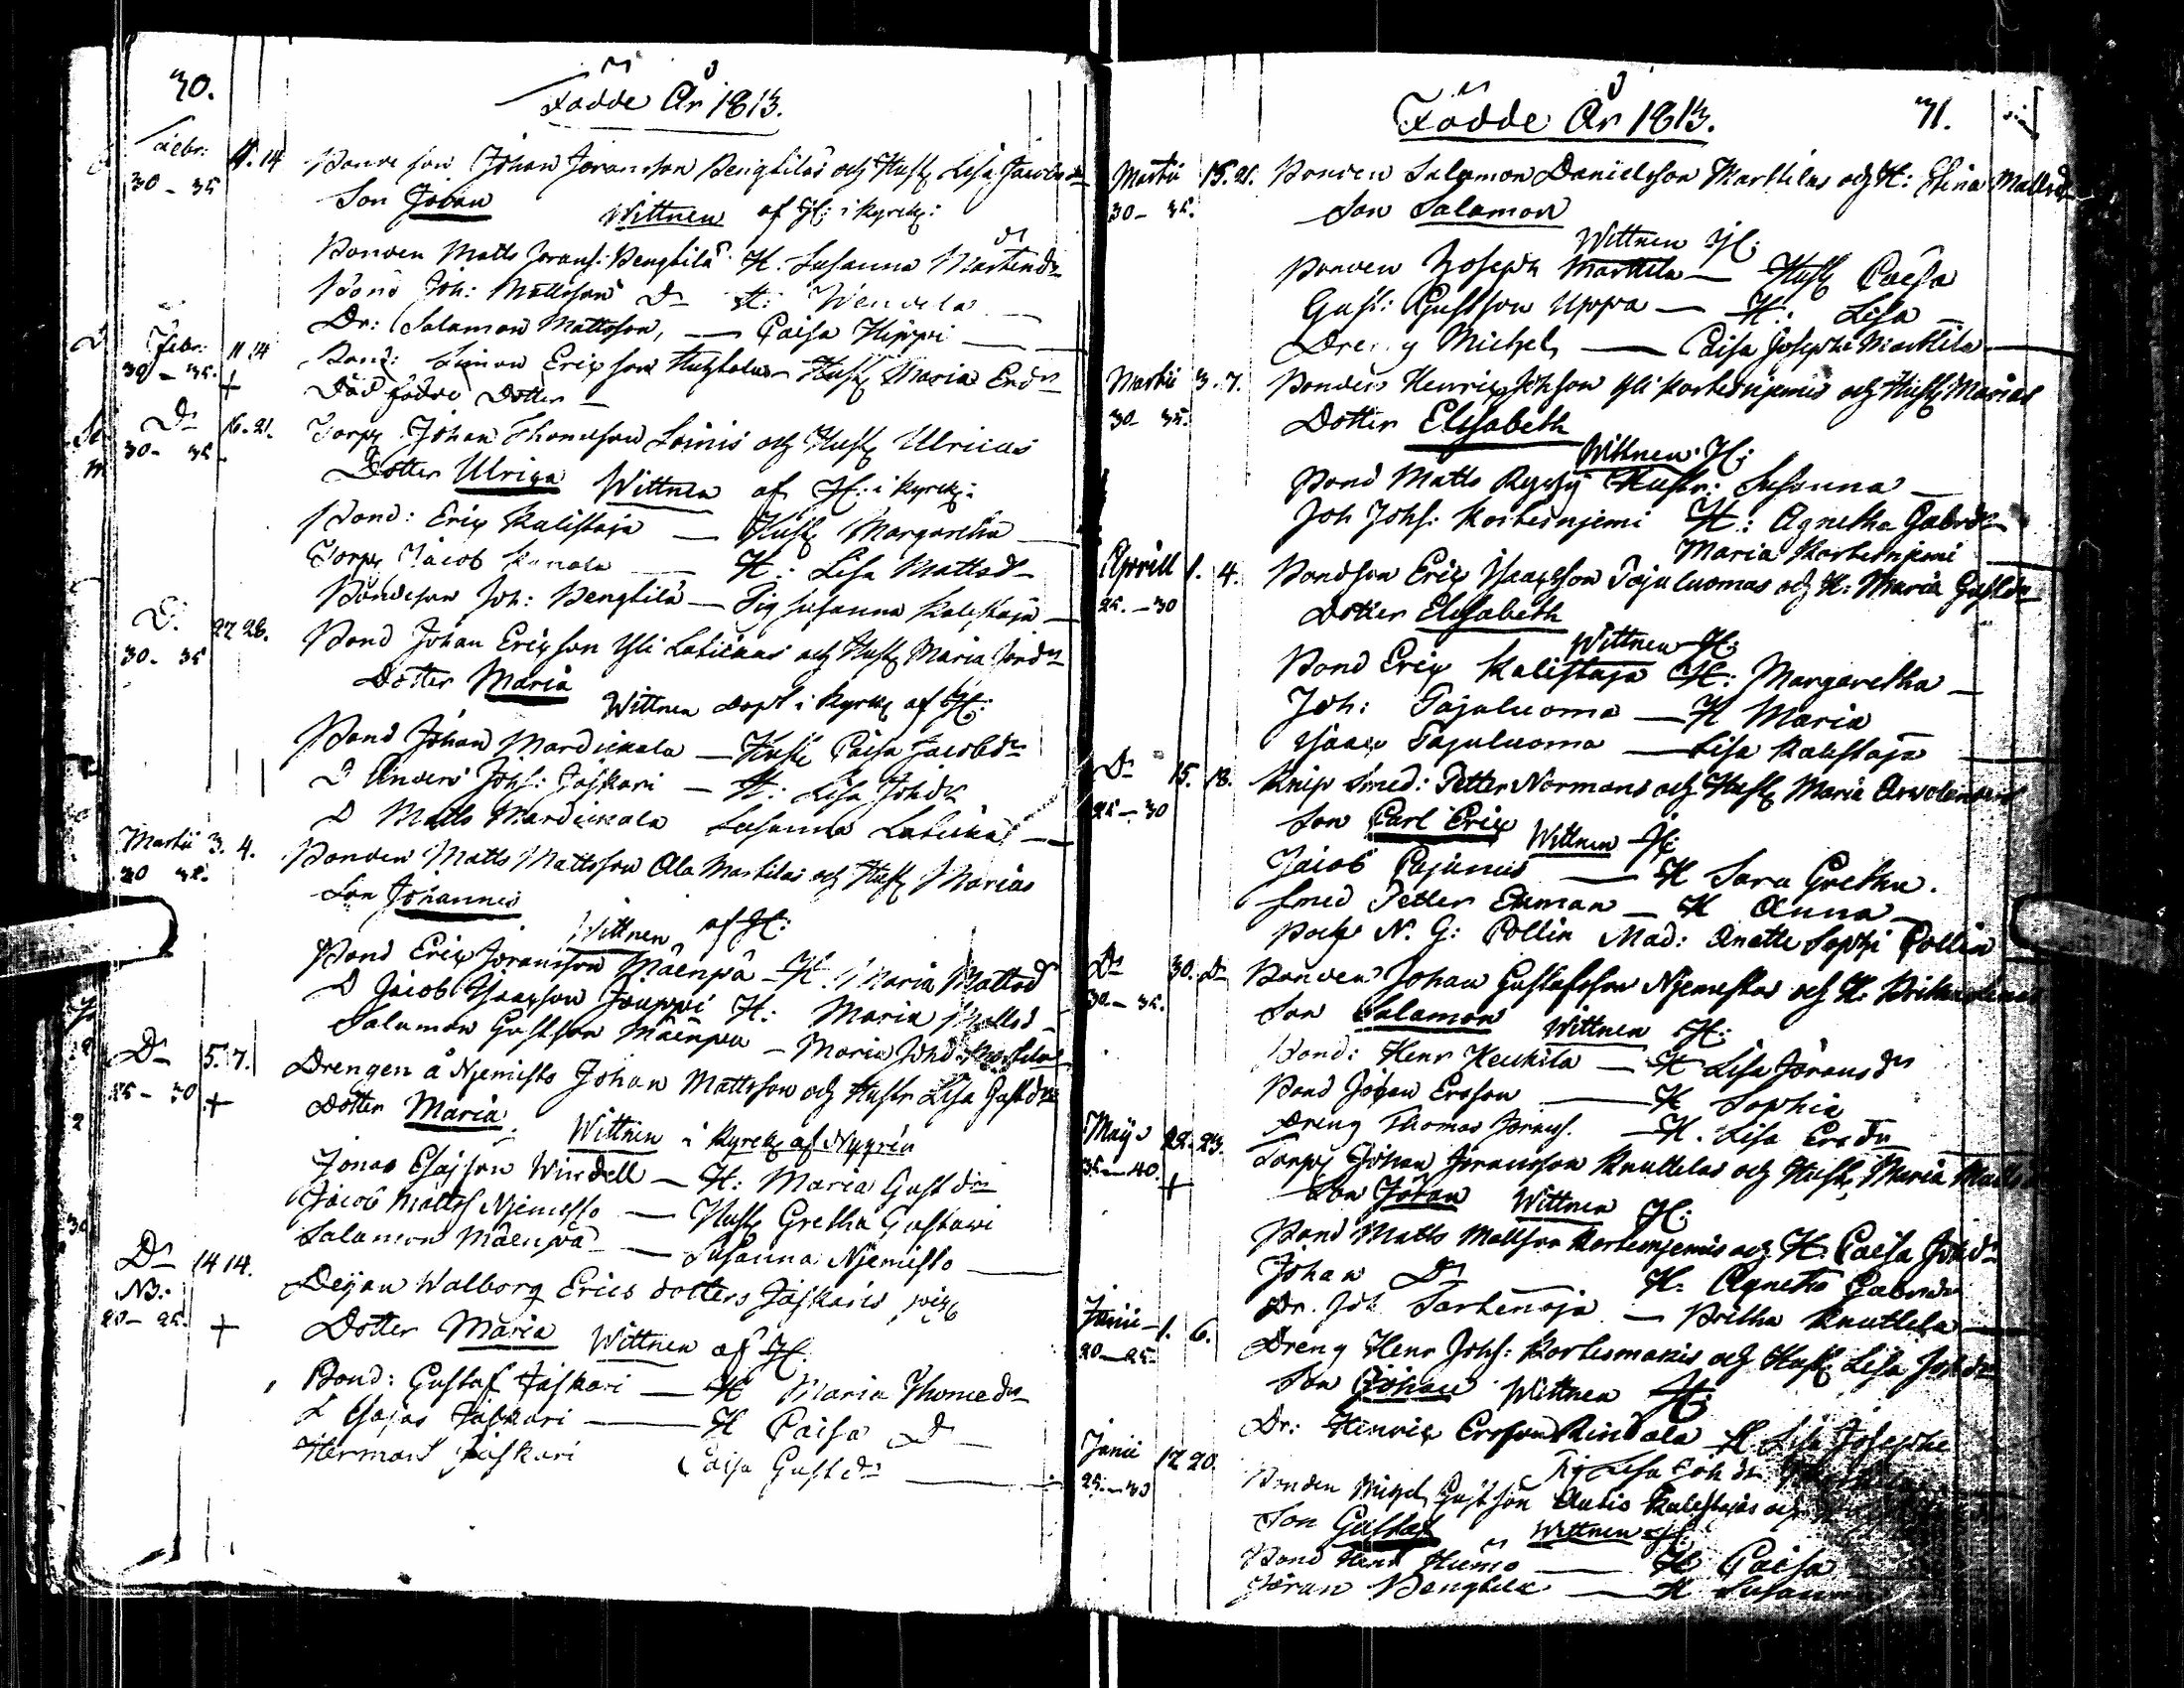 30.
Födde År 1813.
Febr: 11. 14 Bonde son Johan Joransson Bengtilas och Hust Lisa Jacobsdr
30 - 35 Son Johan
Wittnen af H: i kyrck:
Bonden Matts Jorans: Bengtilä H. Susanna Mårtensdr
Bond Joh: Mattsson Do H: Wendela
Dr: Salamon Mattsson, — Caisa Hippi —
Febr: 11 14 Bond: Simon Ericsson Huhtalas Hust Maria Ersdr
30 - 35. + Död födde Dotter —
Do 16. 21. Torp Johan Thomsson Loinis och Hust Ulricas
30 - 35 Dotter Ulrica Wittnen af H: i kyrck:
Bond: Eric Kalistaja — Hust Margaretha —
Torp Jacob — H: Lisa Mattsd
Bondeson Joh: Bengtilä — Pig Susanna Kalistaja —
D. 27 28. Bond Johan Ericsson Yli Latickas och Hust Maria
30 - 35 Dotter Maria
Wittnen döpt i kyrck af H:
Bond Johan Mardickala — Hust Caisa Jacobdr
D Anders Johs: Jaskari — H: Lisa Johdr
D Matts Mardickala Susanna Laticka —
Martii 3. 4. Bonden Matts Mattsson Ala Martilas och Hust Marias
30 35. Son Johannes
Wittnen af H:
Bond Eric Joransson Mäenpä — H Maria Mattsd
D Jacob Isacsson Jouppi H: Maria Mattsd
Salamon Gustsson Mäenpä — Maria Johd: Martilas
Do 5. 7. Drengen å Njemisto Johan Mattsson och Hustr Lisa Gustdrs
25 - 30 + Dotter Maria
Wittnen i kyrck af Nyrén
Jonas Esajsson Windell — H: Maria Gustdr
Jacob Matts Njemisto — Hust Gretha Gustavi
Salamon Mäenpä — Susanna Njemisto —
Do 14 14. Deijan Walborg Erics dotters Jaskaris pig
NB:
20 - 25. + Dotter Maria Wittnen af H:
Bond: Gustaf Jaskari — H Maria Thomedr
D Esajas Jaskari — H Caisa D
Herman Jaskari Caisa Gustdr —
Födde År 1813. 31.
Martii 15. 21. Bonden Salamon Danielsson Marttilas och H: Stina Mattsdr
30 - 35. Son Salamon
Wittnen H:
Bonden Joseph Marttila — Hust Caisa
Gust: Gustsson Uppa — H: Lisa —
Dreng Michel — Caisa Josephi Marttila —
Martii 3. 7. Bonden Henric Johsson Yli Kortesnjemis och Hust Marias
30 - 35. Dotter Elisabeth
Wittnen H:
Bond Matts Ryssy Hustr: Susanna —
Joh Johs: Kortesnjemi H: Agnetha Gabrdr
Maria Kortesnjemi
Aprill 1. 4. Bondson Eric Isacsson Tajuluomas och H: Maria Gustdr
25. - 30 Dotter Elisabeth
Wittnen H:
Bond Eric Kalistaja H: Margaretha —
Joh: Tajuluoma — H Maria
Isaac Tajuluoma — Lisa Kalistaja —
Do 15. 18. Knip Smed: Petter Normans och Hust Maria
25 - 30 Son Carl Eric Wittnen H:
Jacob Pajunus — H Sara Gretha.
Smed Petter Ekman — H Anna —
N. G: Pollin Mad: Anette Sophi Pollin
Do 30. Do Bonden Johan Gustafsson Njemistos och H.
30 - 35. Son Salamon Wittnen H:
Bond: Henr Heikkila — H Lisa Joransdr
Bond Johan Ersson — H Sophia
Dreng Thomas Jorans. — H. Lisa Ersdr
Maij 22. 23. Torp Johan Joransson Knuttilas och Hust Maria
35 - 40. + Son Johan Wittnen H:
Bond Matts Mattsson Kortesnjemis och H: Caisa Johdr
Johan Do H: Agnetha Gabrdr
Dr. Joh — Britha Knuttila —
Junii 1. 6. Dreng Henr Johs: Kortesmakis och Hust Lisa Johdr
20 - 25. Son Johan Wittnen H:
Dr: Henric Ersson Rindala H Lisa Josephi
Pig Lisa Johdr
Junii 12 20. Bonden Michel Gustsson Autio Kalistajas och
25. - 30 Son Gustaf Wittnen H:
Bond Henr — H Caisa
Joran Bengtila — H Susan